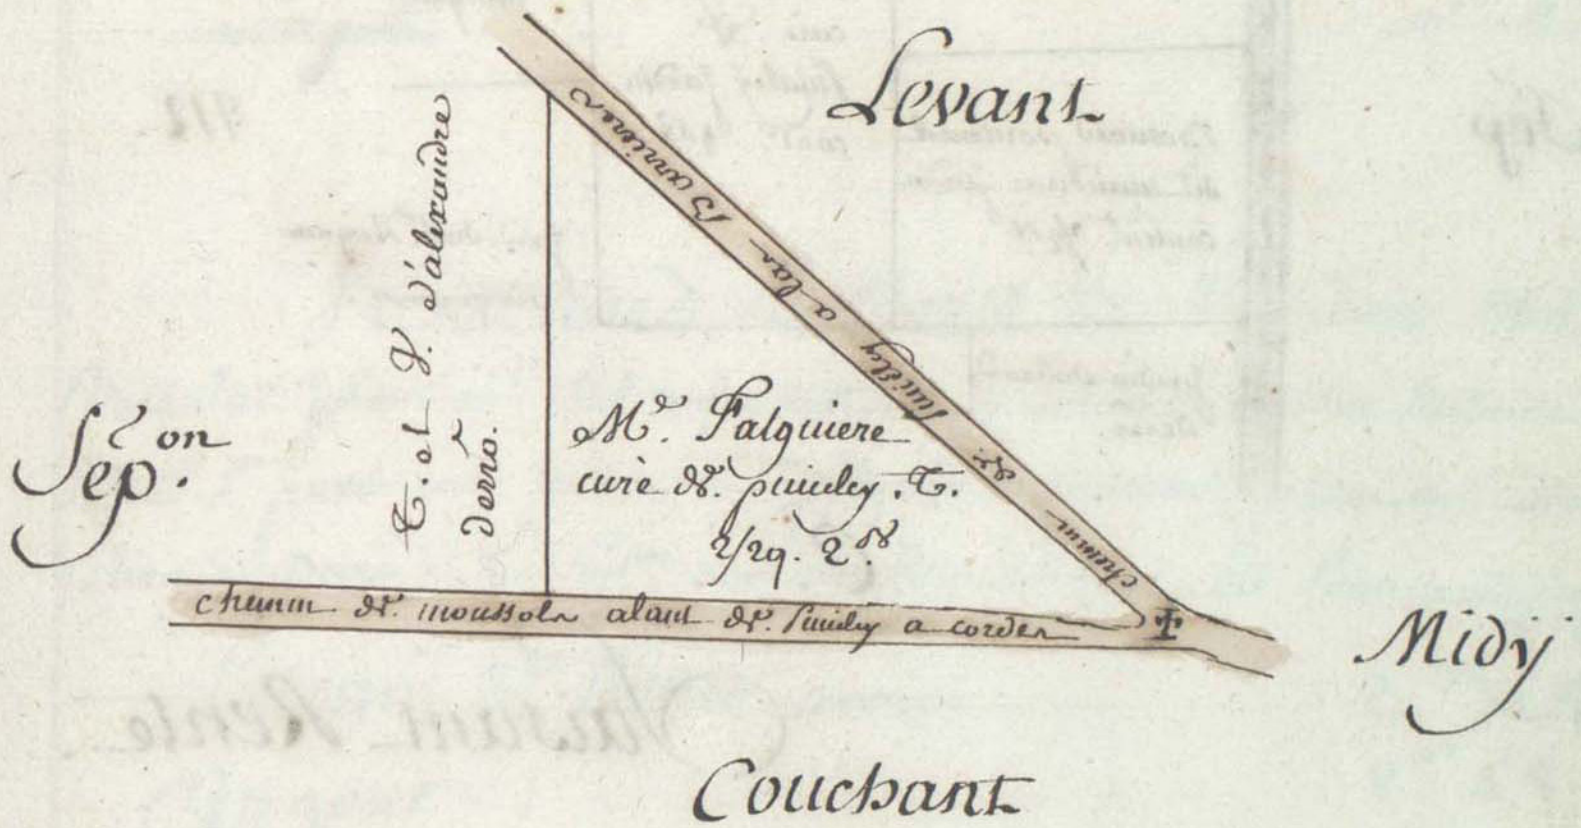 Levant
chemin de puicley a las Barrieres
T. et P. d'alexandre
derro.
Sep.on
Me. Falguiere
curé de. puicley. T.
2/2q. 2.
chemin de. moussols alant de. puicley a cordes
Midy
Couchant